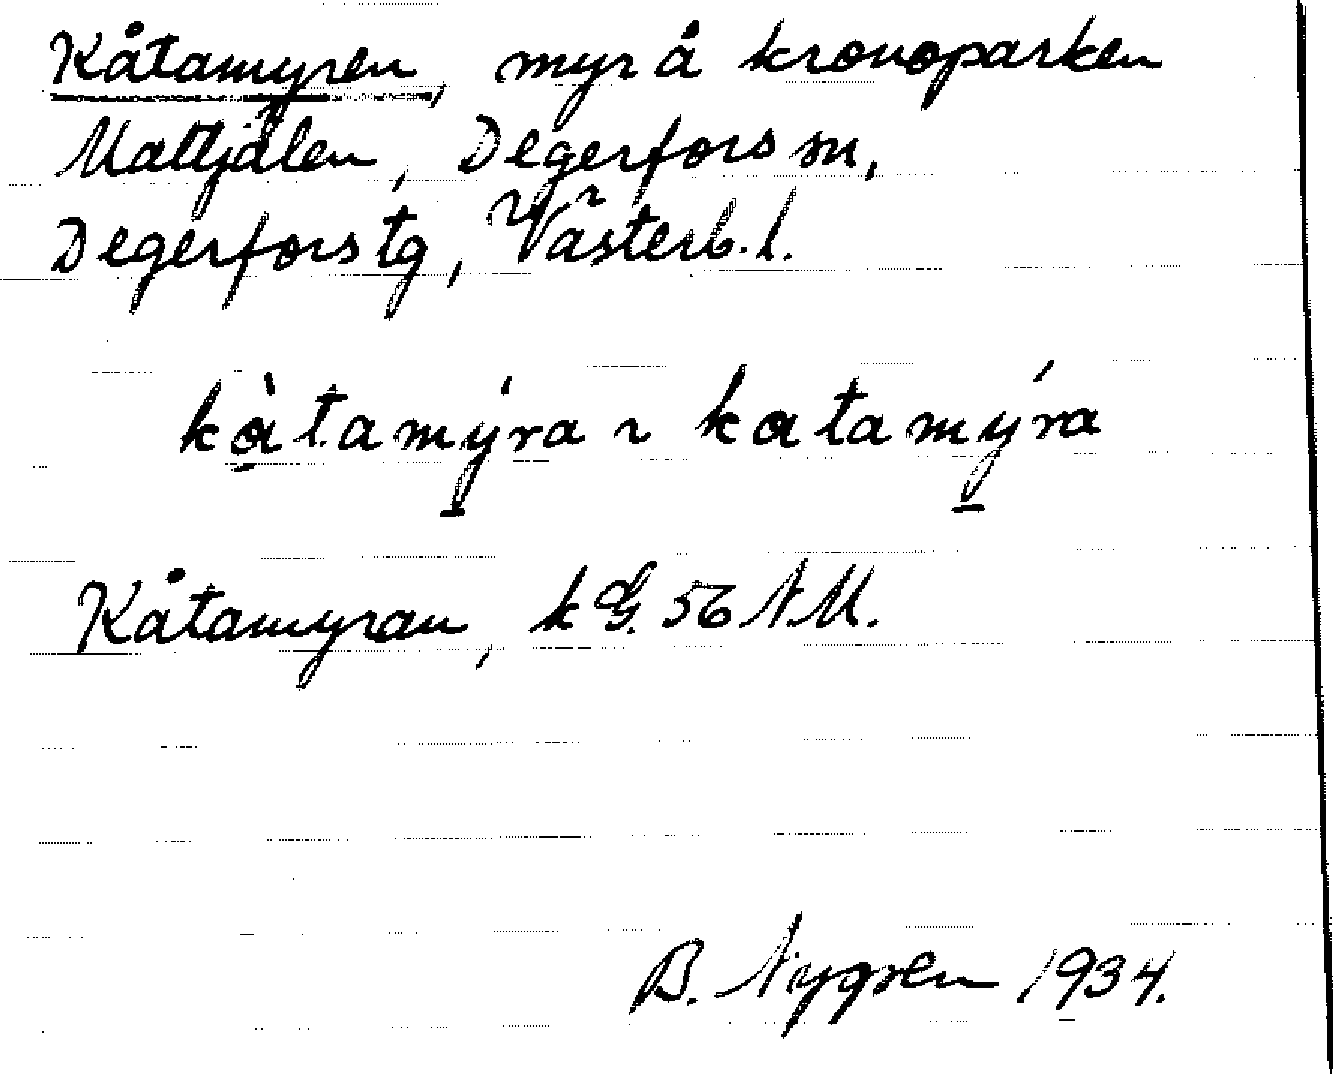 Kåtamyren, myr å kronoparken
Mattjälen, Degerfors sn,
Degerfors tg, Västerb. l.
kàtamýra ~ katamýra
Kåtamyran, k G. 56 N.M.
B. Nygren 1934.